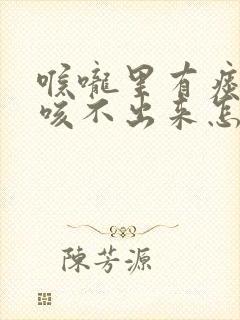 喉嚨里有痰
咳不出来怎
陳芳源